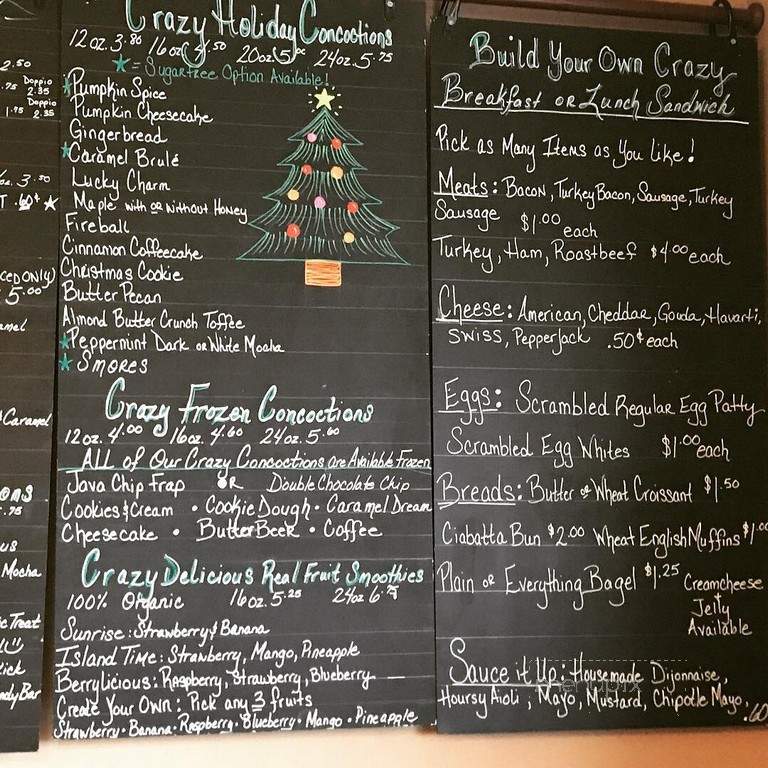 2.50
.75 Doppio 2.35
1.75 Doppio 2.35
3.50
.60¢
CED ONLY)
5.00
amel
Caramel
ons
.75
us
Mocha
c Treat
ick
ndy Bar
Crazy Holiday Concoctions
12oz. 3.80 16oz 4.50 20oz 5 24oz. 5.75
= Sugarfree Option Available!
Pumpkin Spice
Pumpkin Cheesecake
Gingerbread
Caramel Brulé
Lucky Charm
Maple with or without Honey
Fireball
Cinnamon Coffeecake
Christmas Cookie
Butter Pecan
Almond Butter Crunch Toffee
Peppermint Dark or White Mocha
S'mores
Crazy Frozen Concoctions
12oz. 4.00 16oz. 4.60 24oz. 5.60
ALL of Our Crazy Concoctions are Available Frozen
Java Chip Frap OR Double Chocolate Chip
Cookies & Cream • Cookie Dough • Caramel Dream
Cheesecake • Butter Beer • Coffee
Crazy Delicious Real Fruit Smoothies
100% Organic 16oz. 5.25 24oz 6.75
Sunrise: Strawberry & Banana
Island Time: Strawberry, Mango, Pineapple
Berrylicious: Raspberry, Strawberry, Blueberry
Create Your Own: Pick any 3 fruits
Strawberry • Banana • Raspberry • Blueberry • Mango • Pineapple
Build Your Own Crazy
Breakfast or Lunch Sandwich
Pick as Many Items as You like!
Meats: Bacon, Turkey Bacon, Sausage, Turkey
Sausage $1.00 each
Turkey, Ham, Roastbeef $4.00 each
Cheese: American, Cheddar, Gouda, Havarti,
Swiss, Pepperjack .50¢ each
Eggs: Scrambled Regular Egg Patty
Scrambled Egg Whites $1.00 each
Breads: Butter or Wheat Croissant $1.50
Ciabatta Bun $2.00 Wheat English Muffins $1.00
Plain or Everything Bagel $1.25 Creamcheese
Jelly
Available
Sauce it Up: Housemade Dijonnaise,
Hoursy Aioli; Mayo, Mustard, Chipotle Mayo, .60